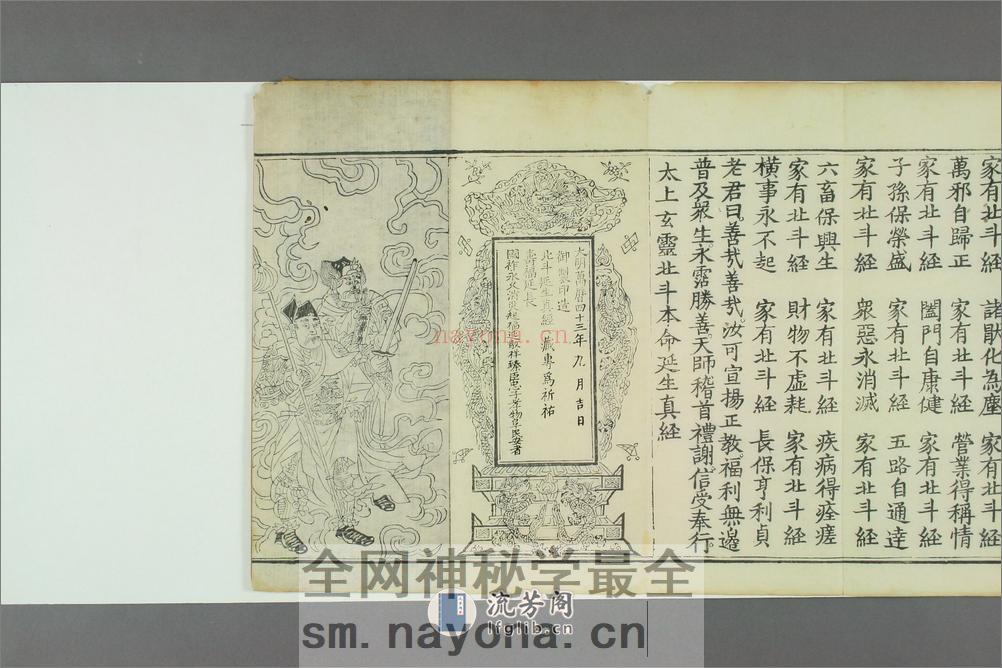 家有北斗經　諸厭化為塵　家有北斗經
萬邪自歸正　家有北斗經　營業得稱情
家有北斗經　闔門自康健　家有北斗經
子孫保榮盛　家有北斗經　五路自通達
家有北斗經　眾惡永消滅　家有北斗經
六畜保興生　家有北斗經　疾病得痊瘥
家有北斗經　財物不虛耗　家有北斗經
橫事永不起　家有北斗經　長保亨利貞
老君曰善哉善哉汝可宣揚正教福利無邊
普及眾生永霑勝善天師稽首禮謝信受奉行
太上玄靈北斗本命延生真經
大明萬曆四十三年九月吉日
御製印造
北斗延生真經一藏專為祈祐
壽福延長
nayona.com
全网神秘学最全
流芳阁
lfglib.cn
sm.nayona.cn